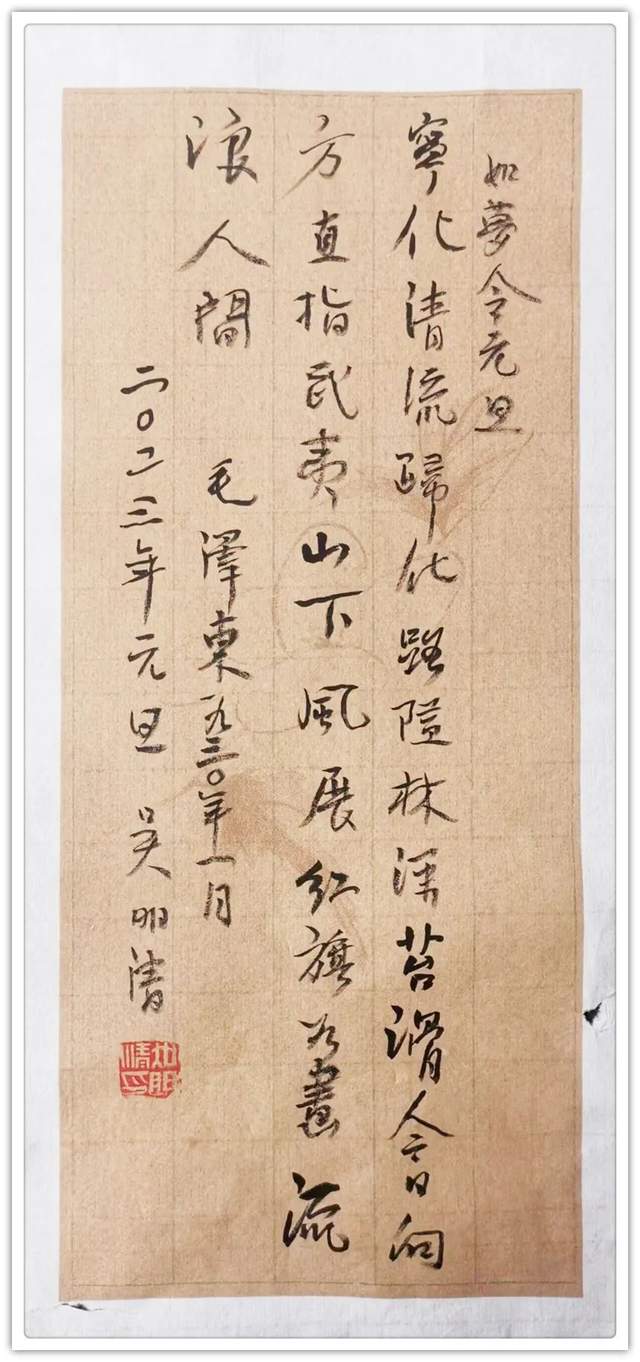 如夢令元旦
寧化清流歸化路隘林深苔滑今日向
方直指武夷山下風展紅旗如畫流
浪人間 毛澤東一九三〇年一月
二〇二三年元旦 吴明清